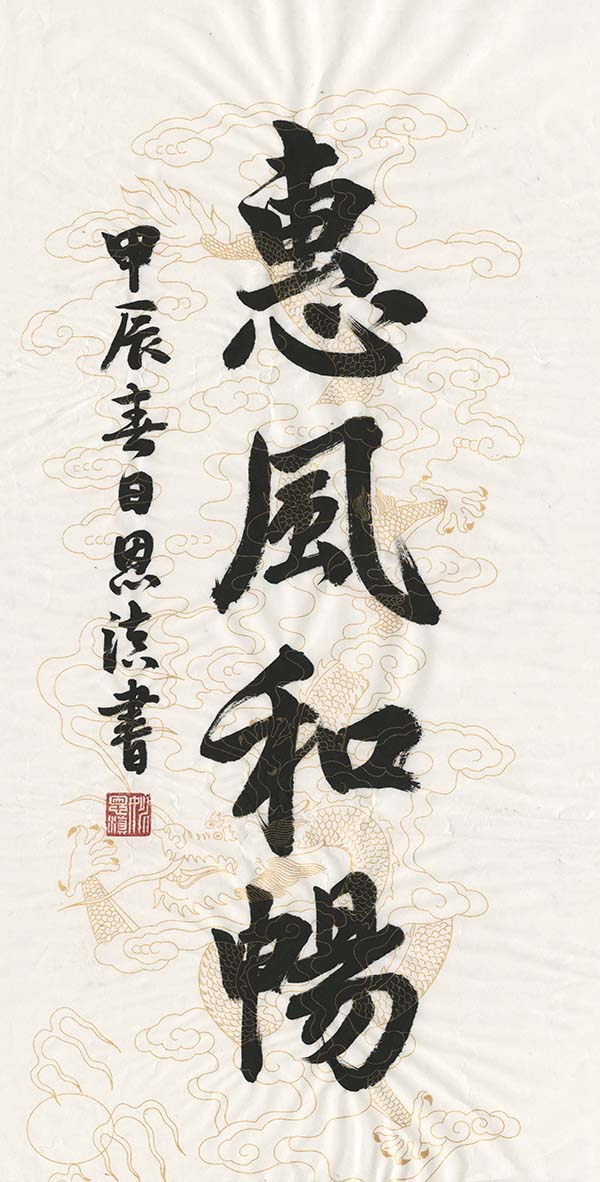 惠風和暢
甲辰春日書